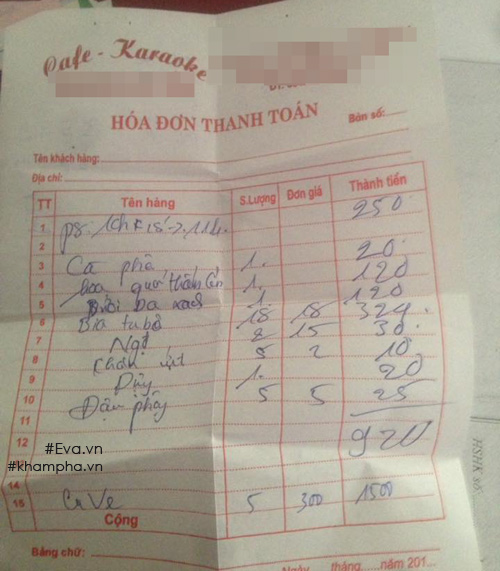 Cafe - Karaoke
HÓA ĐƠN THANH TOÁN
Bàn số:
Tên khách hàng:
Địa chỉ:
TT Tên hàng S.Lượng Đơn giá Thành tiền
1 250
2
3 Cà phê 1. 20
4 1. 120
5 1 120
6 Bia 18 18 324
7 Ngọt 2 15 30
8 Khăn ướt 5 2 10
9 1. 20
10 Đậu phộng 5 5 25
11
12 920
#Eva.vn
#khampha.vn
14
15 Ve 5 300 1500
Cộng
Bằng chữ:
Ngày tháng năm 201...
HSHK